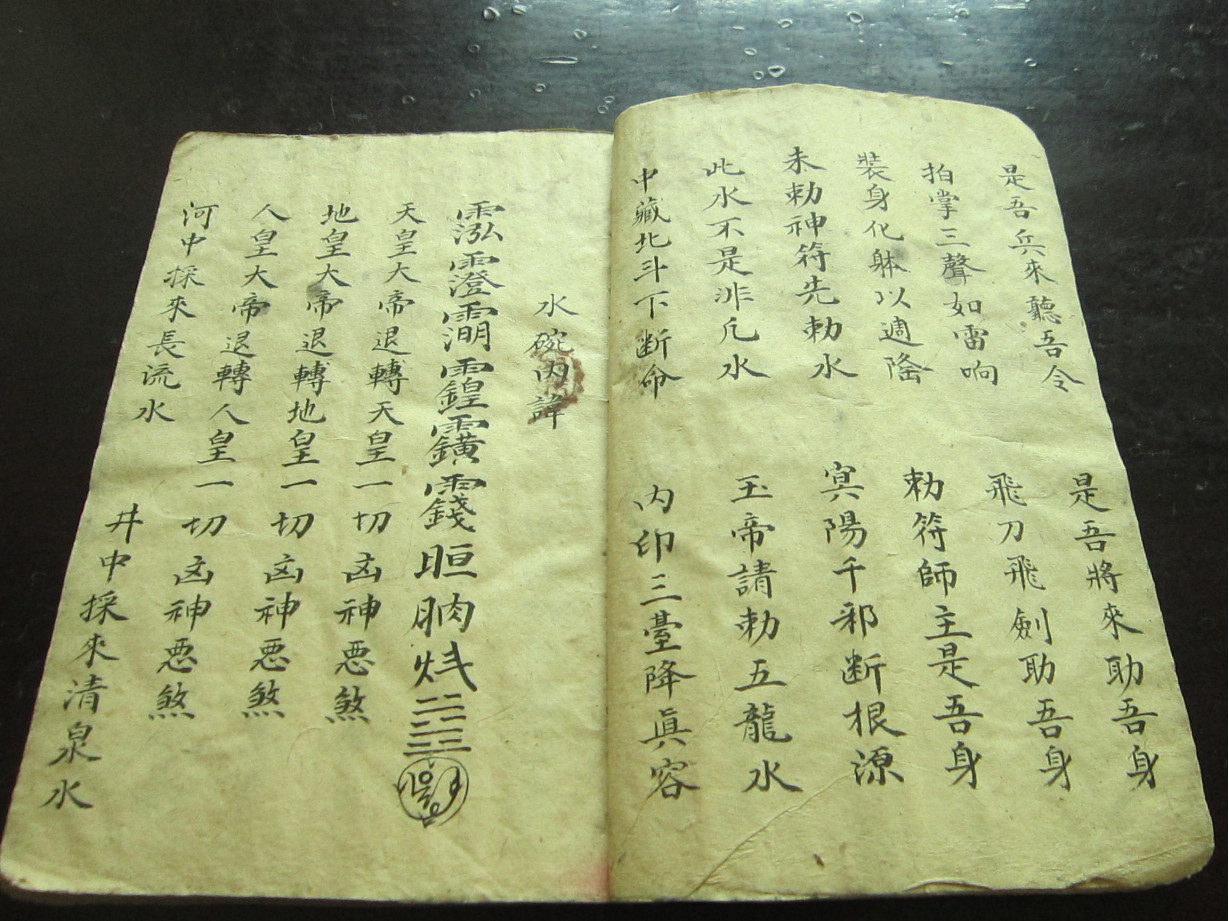 是吾兵來聽吾令　是吾將來助吾身
拍掌三聲如雷响　飛刀飛劍助吾身
裝身化躰以週　勅符師主是吾身
未勅神符先勅水　冥陽千邪断根源
此水不是非凢水　玉帝請勅五龍水
中藏北斗下断命　内印三臺降眞容
水碗内諱
天皇大帝退轉天皇一切㐫神悪煞
地皇大帝退轉地皇一切㐫神悪煞
人皇大帝退轉人皇一切㐫神悪煞
河中採來長流水　井中採來清泉水